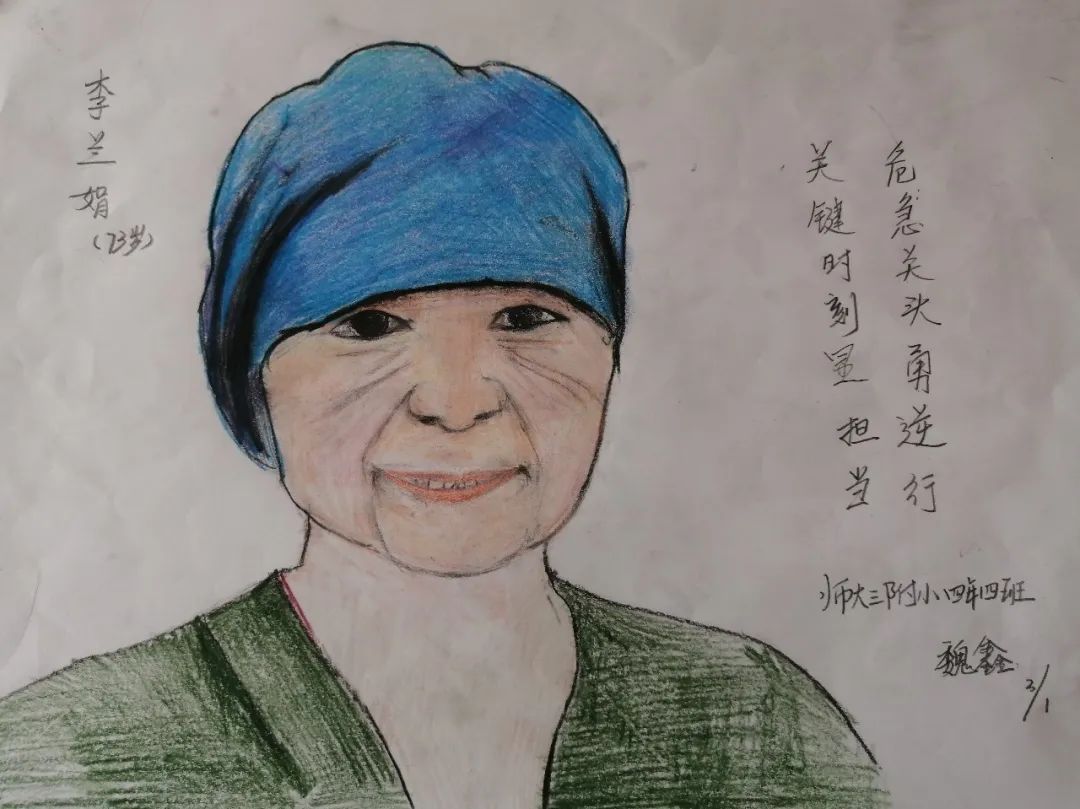 李兰娟
（73岁）
危急关头勇逆行
关键时刻显担当
师大三附小四年四班
魏鑫
3/1